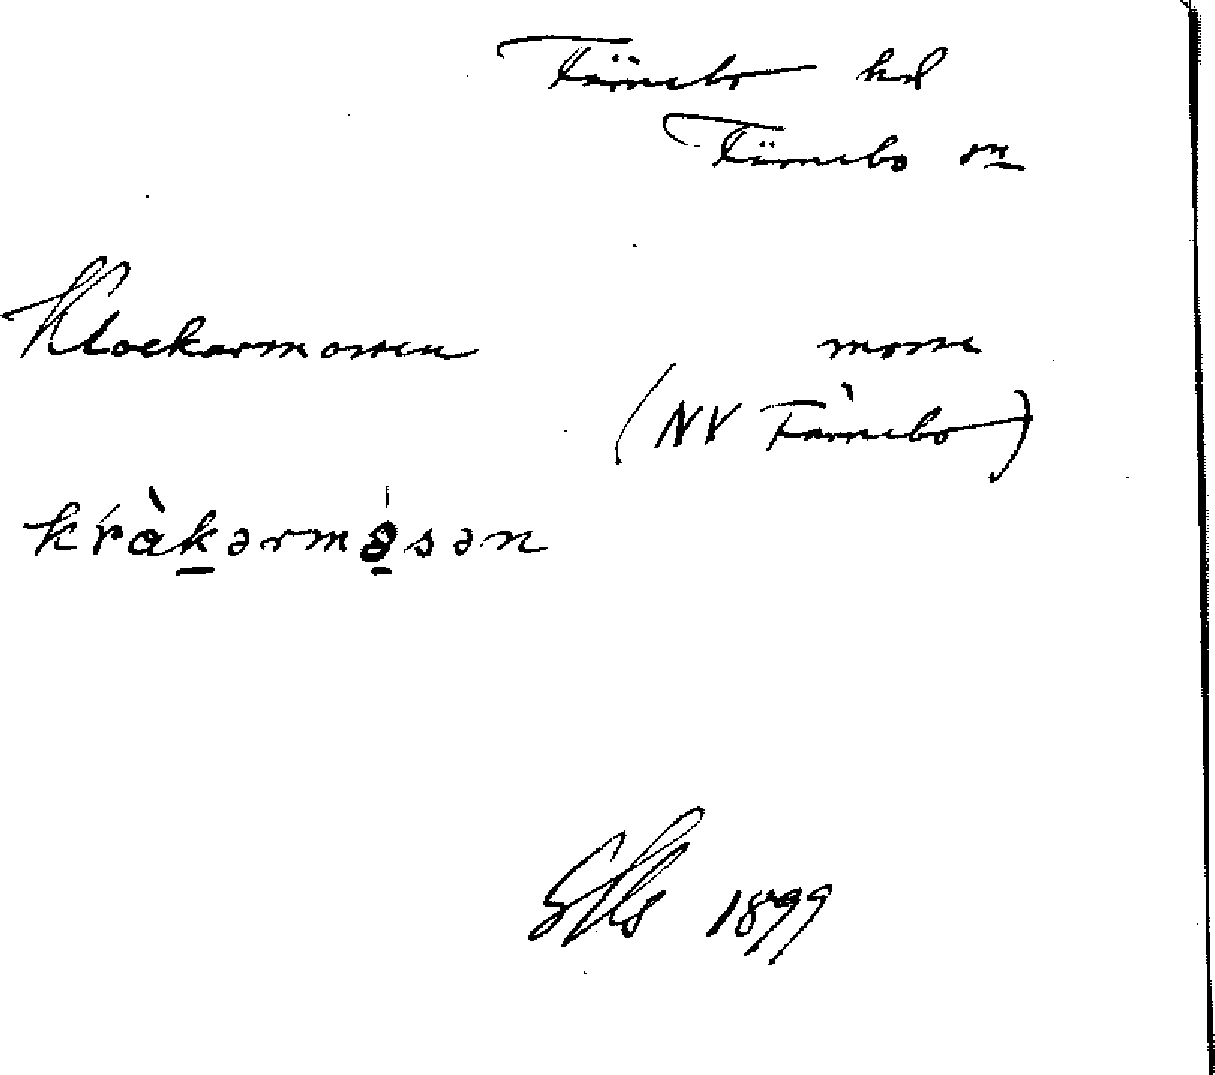 Färnebo hd
Färnebo sn
Klockarmossen mosse
(NV Färnebo)
kràkərmòsən
1899